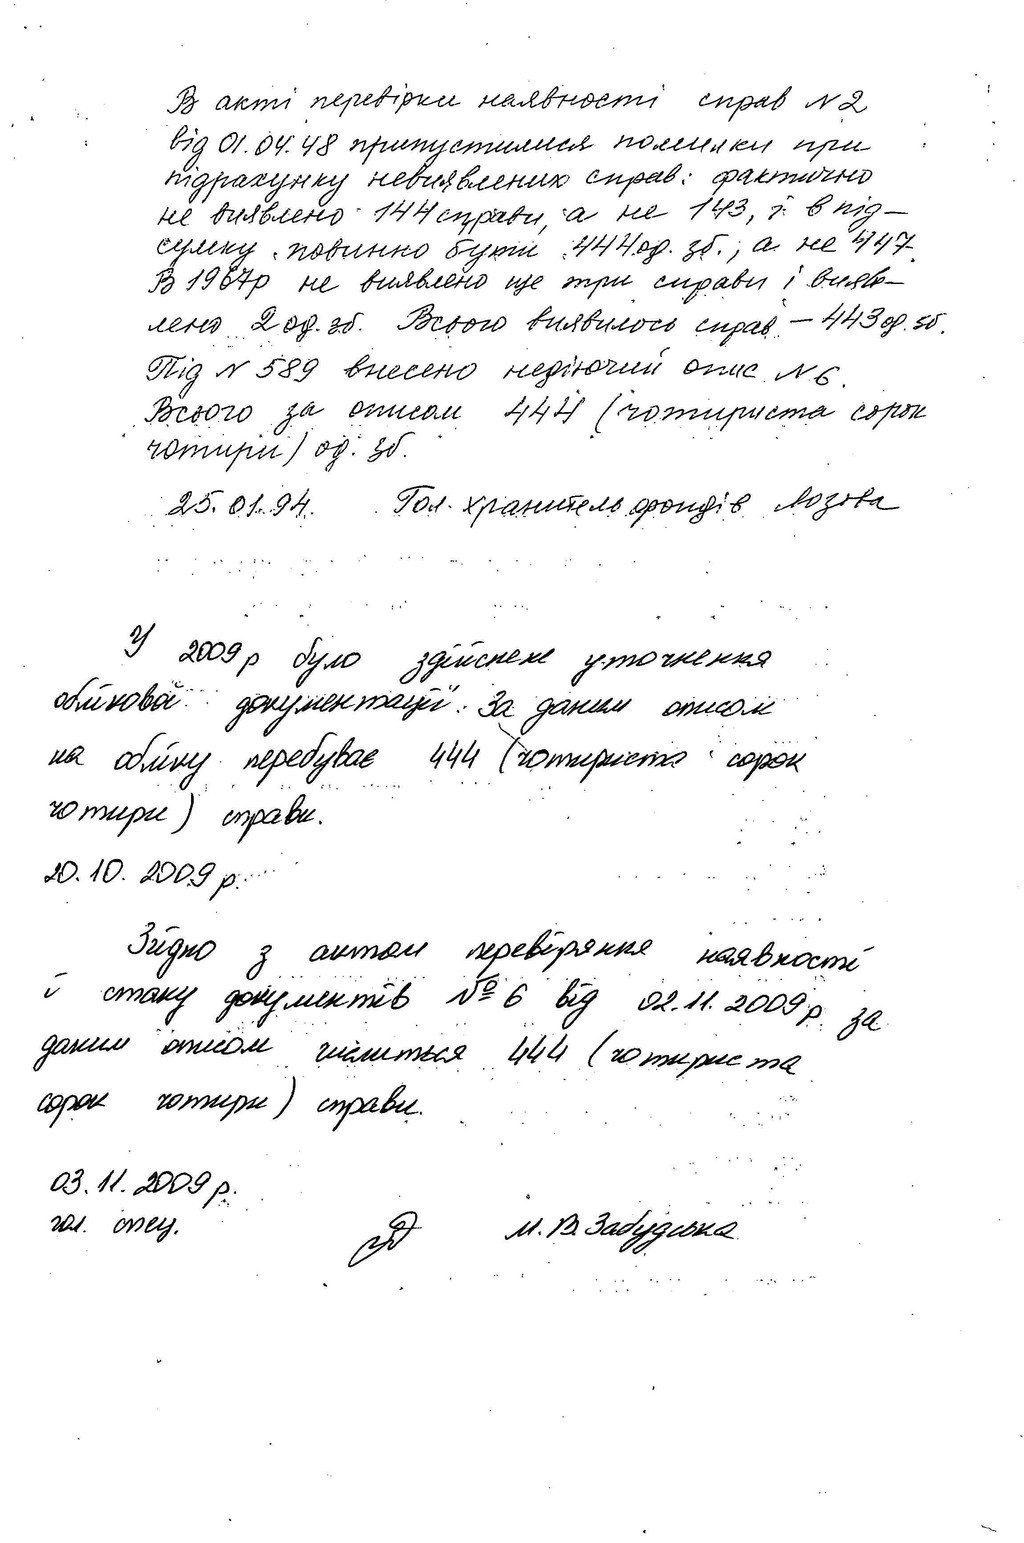 В акті перевірки наявності справ №2
від 01.04.48 припустилися помилки при
підрахунку невиявлених справ: фактично
не виявлено 144 справи, а не 143, і в під–
сумку повинно бути 444 од. зб., а не 447.
В 1967р не виявлено ще три справи і вияв–
лено 2 од. зб. Всього виявилось справ – 443 од. зб.
Під № 589 внесено недіючий опис №6.
Всього за описом 444 (чотириста сорок
чотири) од. зб.
25.01.94. Гол. хранитель фондів Лозова
У 2009 р було здійснене уточнення
облікової документації. За даним описом
на обліку перебуває 444 (чотириста сорок
чотири) справи.
20.10.2009 р.
Згідно з актом перевіряння наявності
і стану документів № 6 від 02.11.2009 р. за
даним описом числиться 444 (чотириста
сорок чотири) справи.
03.11.2009 р.
гол. спец. М.В. Забудська